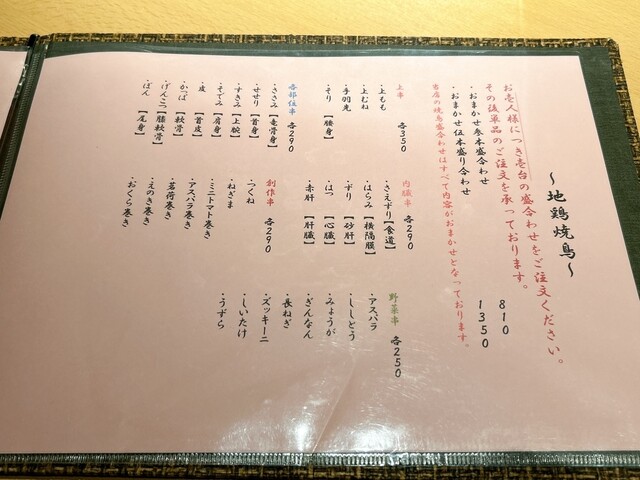 ～地鶏焼鳥～
お壱人様につき壱台の盛合わせをご注文ください。
その後単品のご注文を承っております。
・おまかせ参本盛合わせ 810
・おまかせ伍本盛り合わせ 1350
当店の焼鳥盛合わせはすべて内容がおまかせとなっております。
上串 各350
・上もも
・上むね
・手羽先
・そり【腰身】
内臓串 各290
・さえずり【食道】
・はらみ【横隔膜】
・ずり【砂肝】
・はつ【心臓】
・赤肝【肝臓】
野菜串 各250
・アスパラ
・ししとう
・みょうが
・ぎんなん
・長ねぎ
・ズッキーニ
・しいたけ
・うずら
各部位串 各290
・ささみ【竜骨身】
・せせり【首身】
・すきみ【上腕】
・そでみ【肩身】
・皮【首皮】
・かっぱ【軟骨】
・げんこつ【膝軟骨】
・ぼん【尾身】
創作串 各290
・つくね
・ねぎま
・ミニトマト巻き
・アスパラ巻き
・茗荷巻き
・えのき巻き
・おくら巻き